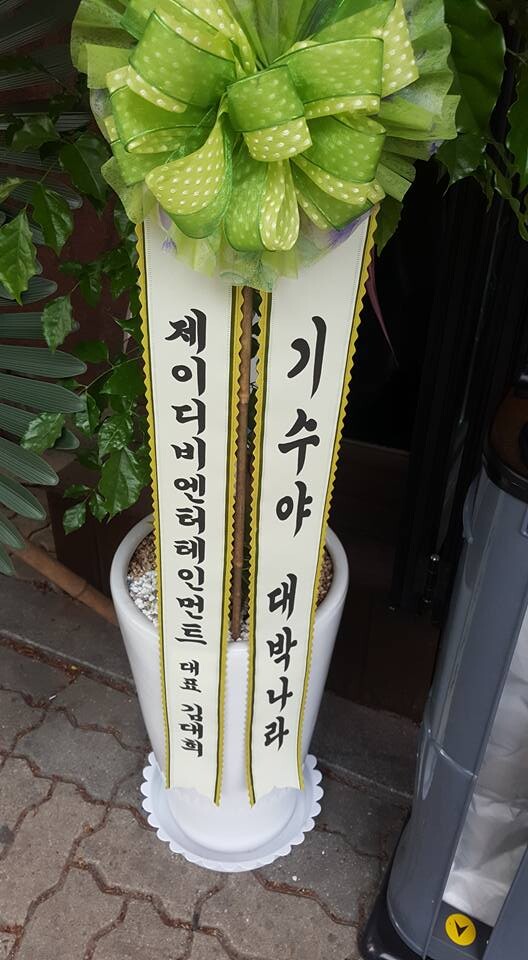 기수야 대박나라
제이디비엔터테인먼트 대표 김대희